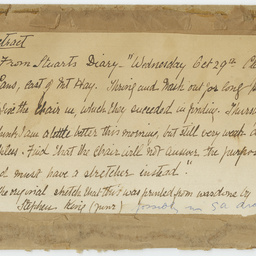 Extract
From Stuart's Diary - "Wednesday Oct 29th
Pans, east of Mt Hay. Thring and Nash out for long
the chair in, which they succeeded in finding. Thurs
think I am a little better this morning, but still very weak
Find that the chair will not answer the purpose
must have a stretcher instead."
The original sketch that this was printed from was done by
Stephen King (junr)